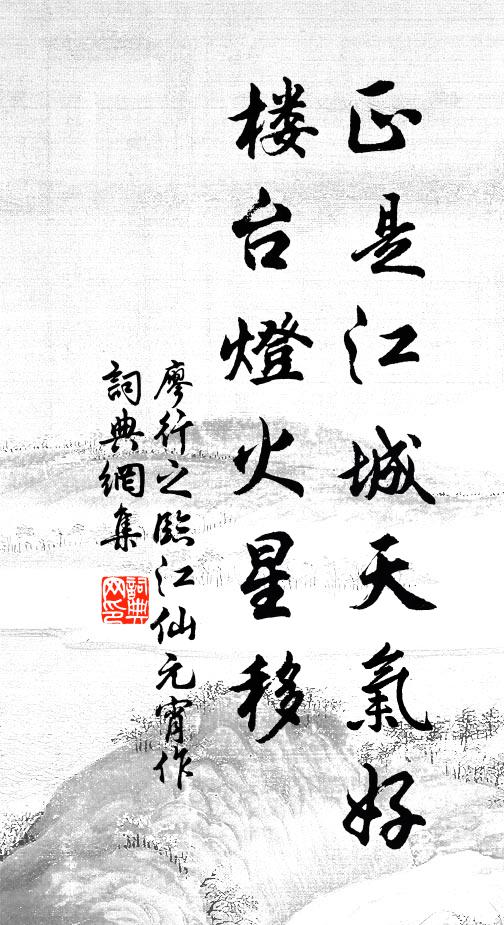 正是江城天氣好
楼台燈火星移
廖行之臨江仙元宵作
詞典網集
詞典網印